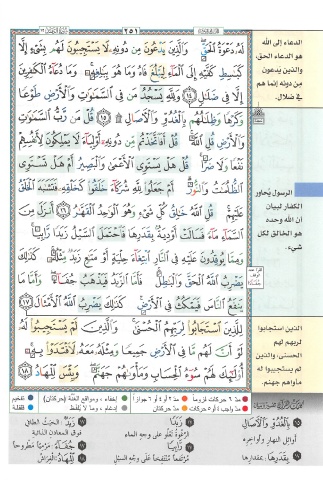 ٢٥١
لَهُۥ دَعْوَةُ ٱلْحَقِّ وَٱلَّذِينَ يَدْعُونَ مِن دُونِهِۦ لَا يَسْتَجِيبُونَ لَهُم بِشَىْءٍ إِلَّا
كَبَـٰسِطِ كَفَّيْهِ إِلَى ٱلْمَآءِ لِيَبْلُغَ فَاهُ وَمَا هُوَ بِبَـٰلِغِهِۦ وَمَا دُعَآءُ ٱلْكَـٰفِرِينَ
إِلَّا فِى ضَلَـٰلٍ ١٤ وَلِلَّهِ يَسْجُدُ مَن فِى ٱلسَّمَـٰوَٰتِ وَٱلْأَرْضِ طَوْعًا
وَكَرْهًا وَظِلَـٰلُهُم بِٱلْغُدُوِّ وَٱلْـَٔاصَالِ ١٥ قُلْ مَن رَّبُّ ٱلسَّمَـٰوَٰتِ
وَٱلْأَرْضِ قُلِ ٱللَّهُ قُلْ أَفَٱتَّخَذْتُم مِّن دُونِهِۦٓ أَوْلِيَآءَ لَا يَمْلِكُونَ لِأَنفُسِهِمْ
نَفْعًا وَلَا ضَرًّا قُلْ هَلْ يَسْتَوِى ٱلْأَعْمَىٰ وَٱلْبَصِيرُ أَمْ هَلْ تَسْتَوِى
ٱلظُّلُمَـٰتُ وَٱلنُّورُ أَمْ جَعَلُوا۟ لِلَّهِ شُرَكَآءَ خَلَقُوا۟ كَخَلْقِهِۦ فَتَشَـٰبَهَ ٱلْخَلْقُ
عَلَيْهِمْ قُلِ ٱللَّهُ خَـٰلِقُ كُلِّ شَىْءٍ وَهُوَ ٱلْوَٰحِدُ ٱلْقَهَّـٰرُ ١٦ أَنزَلَ مِنَ
ٱلسَّمَآءِ مَآءً فَسَالَتْ أَوْدِيَةٌۢ بِقَدَرِهَا فَٱحْتَمَلَ ٱلسَّيْلُ زَبَدًا رَّابِيًا
وَمِمَّا يُوقِدُونَ عَلَيْهِ فِى ٱلنَّارِ ٱبْتِغَآءَ حِلْيَةٍ أَوْ مَتَـٰعٍ زَبَدٌ مِّثْلُهُۥ كَذَٰلِكَ
يَضْرِبُ ٱللَّهُ ٱلْحَقَّ وَٱلْبَـٰطِلَ فَأَمَّا ٱلزَّبَدُ فَيَذْهَبُ جُفَآءً وَأَمَّا مَا
يَنفَعُ ٱلنَّاسَ فَيَمْكُثُ فِى ٱلْأَرْضِ كَذَٰلِكَ يَضْرِبُ ٱللَّهُ ٱلْأَمْثَالَ ١٧
لِلَّذِينَ ٱسْتَجَابُوا۟ لِرَبِّهِمُ ٱلْحُسْنَىٰ وَٱلَّذِينَ لَمْ يَسْتَجِيبُوا۟ لَهُۥ
لَوْ أَنَّ لَهُم مَّا فِى ٱلْأَرْضِ جَمِيعًا وَمِثْلَهُۥ مَعَهُۥ لَٱفْتَدَوْا۟ بِهِۦٓ
أُو۟لَـٰٓئِكَ لَهُمْ سُوٓءُ ٱلْحِسَابِ وَمَأْوَىٰهُمْ جَهَنَّمُ وَبِئْسَ ٱلْمِهَادُ ١٨
الدعاء إلى الله
هو الدعاء الحق،
والذين يدعون
من دونه إنما هم
في ضلال.
الرسول يُحاور
الكفار لبيان
أن الله وحده
هو الخالق لكل
شيء.
الذين استجابوا
لربهم لهم
الحسنى، والذين
لم يستجيبوا له
مأواهم جهنم.
بِالْغُدُوِّ وَالْآصَالِ
أوائل النهار وأواخره
بِقَدَرِهَا: بمقدارها